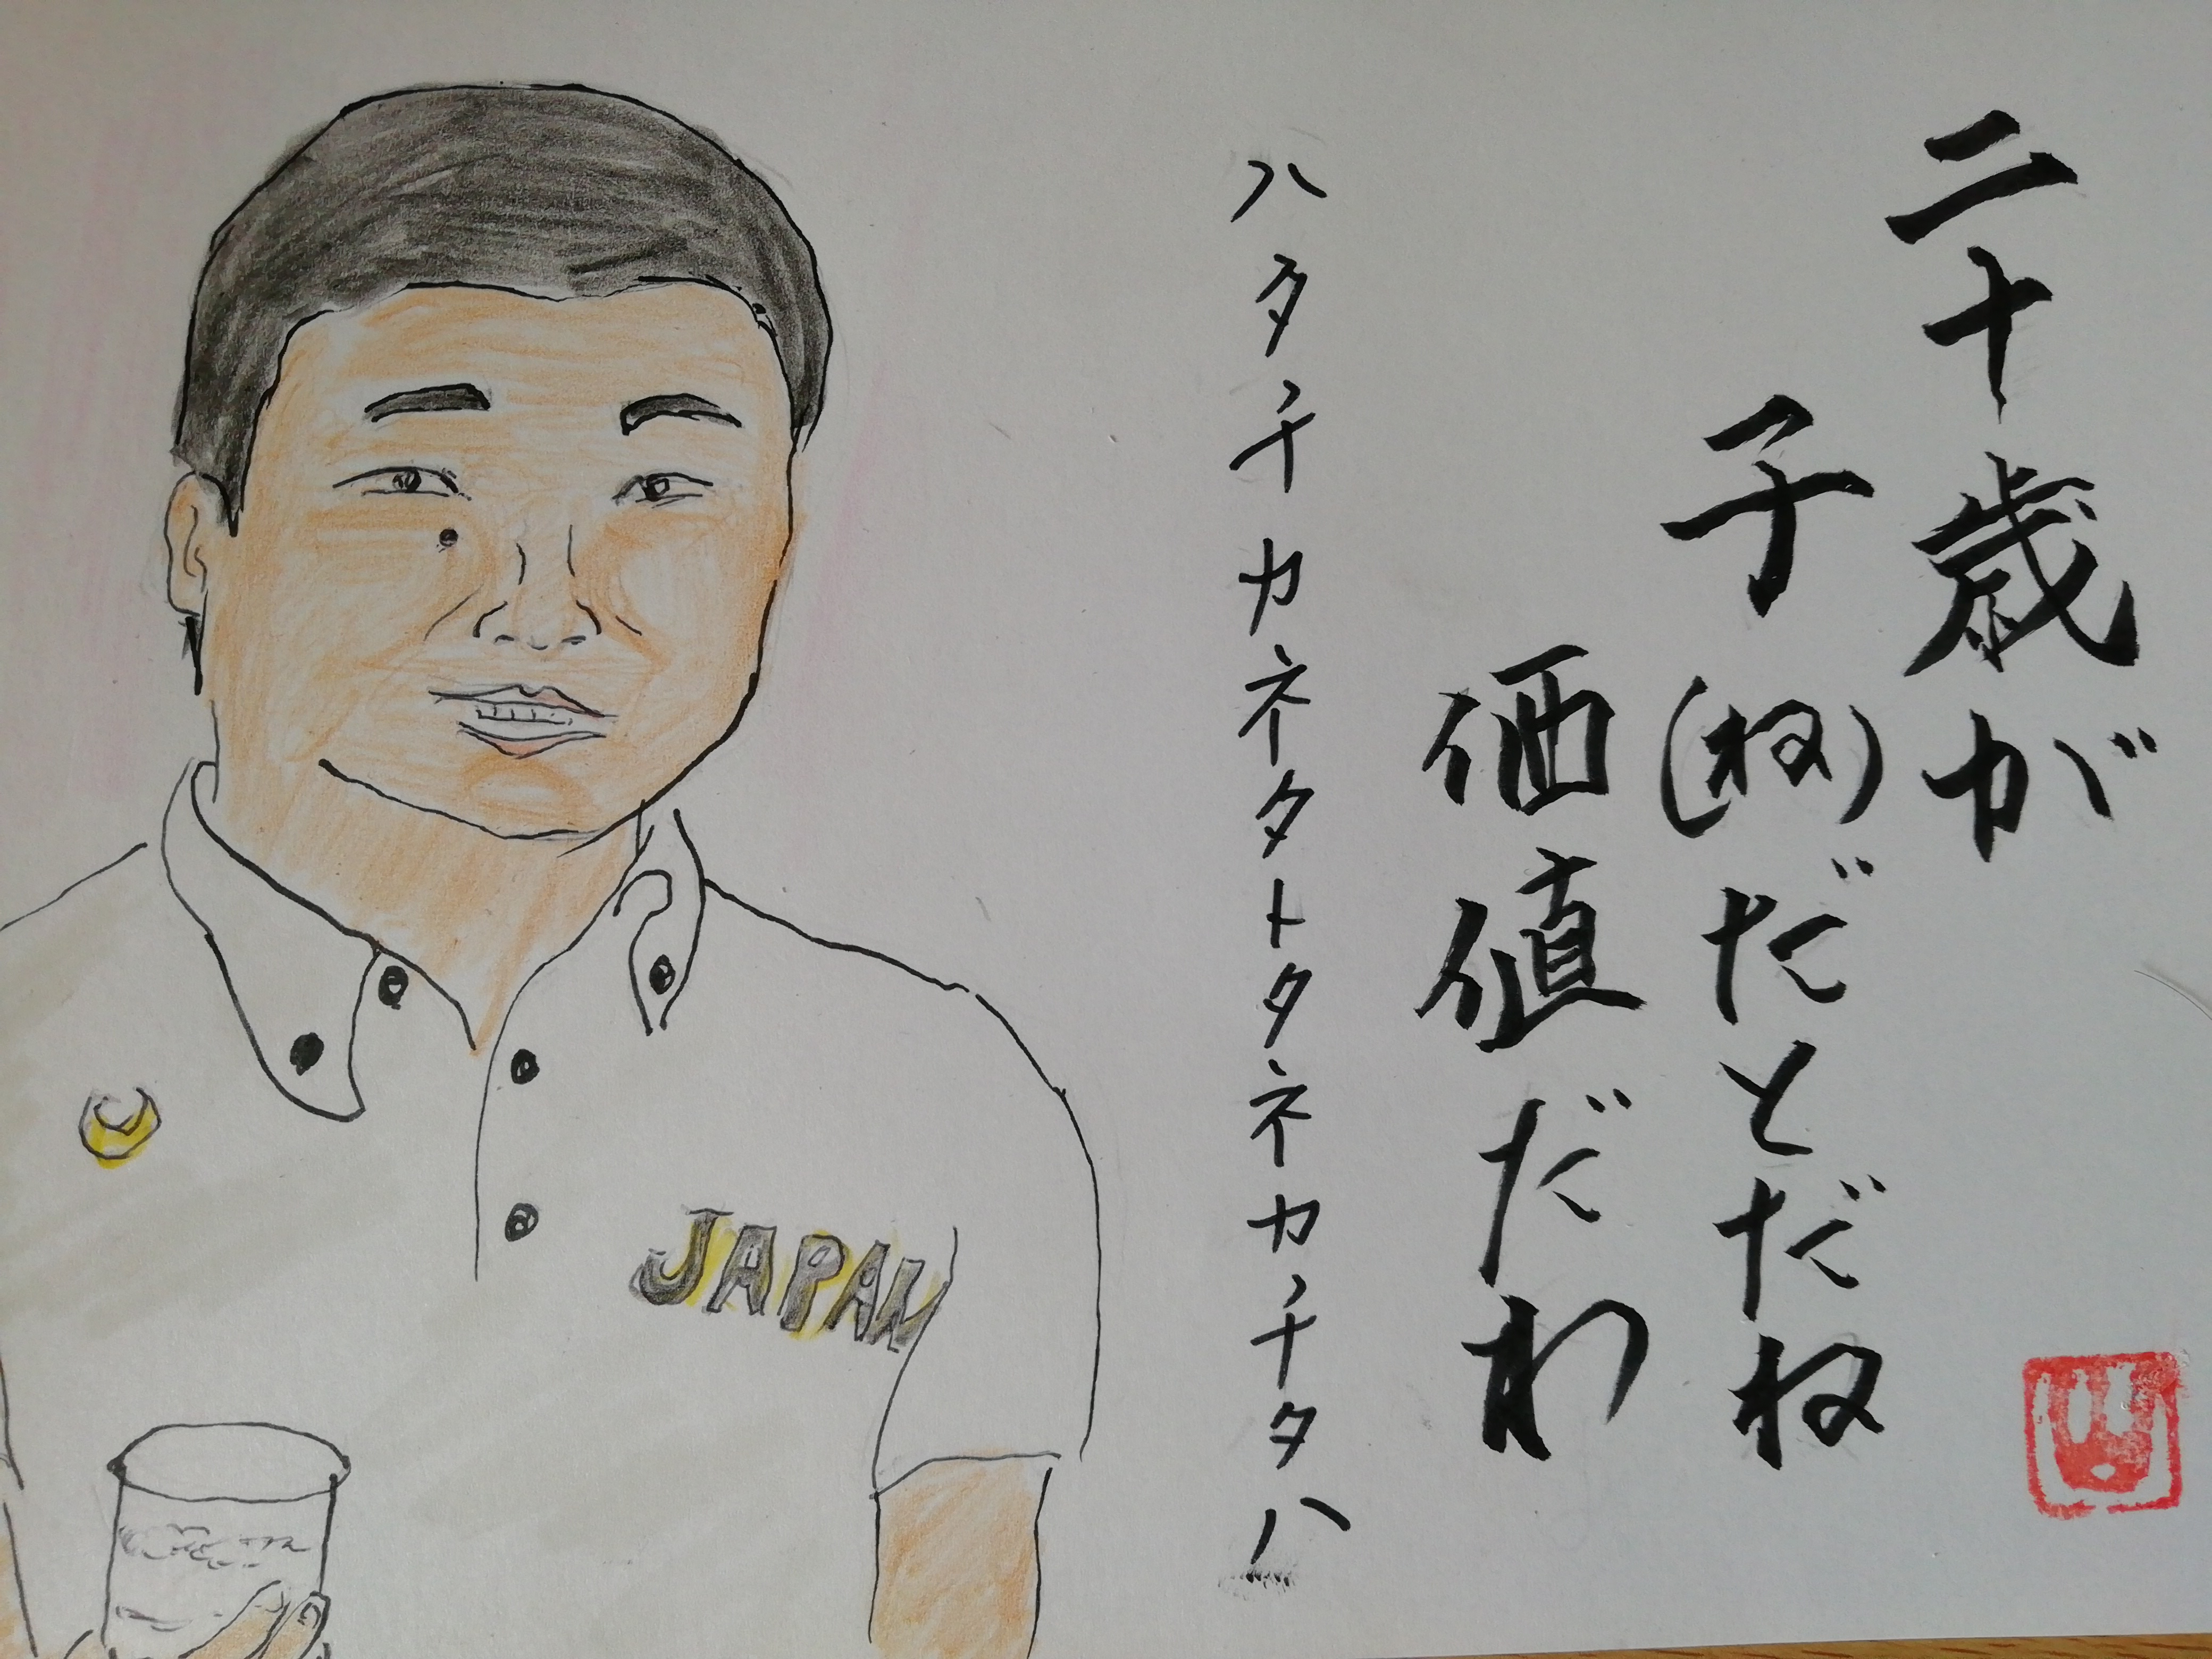 二十歳が
子(ね)だとだね
価値だわ
ハタチカネタトタネカチタハ
JAPAN